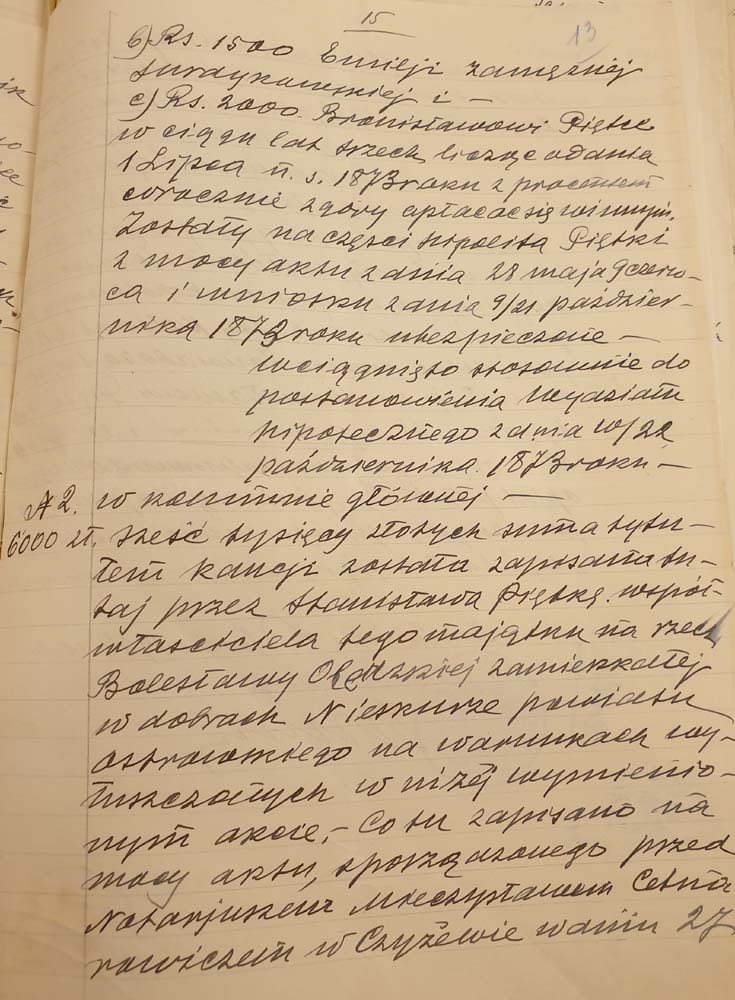 15
13
b) Rs. 1500 Emilji zamężniej
Surdykowskiej i —
c) Rs. 2000. Bronisławowi Piętce
w ciągu lat trzech licząc od dnia
1 Lipca n. s. 1873 roku z procentem
corocznie z góry opłacać się winnym.
Zostały na części Hipolita Piętki
z mocy aktu z dnia 28 maja 9 czerw-
ca i wniosku z dnia 9/21 paździer-
nika 1873 roku ubezpieczone —
wciągnięto stosownie do
postanowienia Wydziału
hipotecznego z dnia 10/22
października 1873 roku —
№ 2. w kolumnie głównej —
6000 zł. sześć tysięcy złotych suma tytu-
łem kaucji została zapisana tu-
taj przez Stanisława Piętkę współ-
właściciela tego majątku na rzecz
Bolesławy Olędzkiej zamieszkałej
w dobrach Nieskurze powiatu
ostrowskiego na warunkach wy-
łuszczonych w niżej wymienio-
nym akcie, – Co tu zapisano na
mocy aktu, sporządzonego przed
Notarjuszem Mieczysławem Cetna
rowiczem w Czyżewie w dniu 27